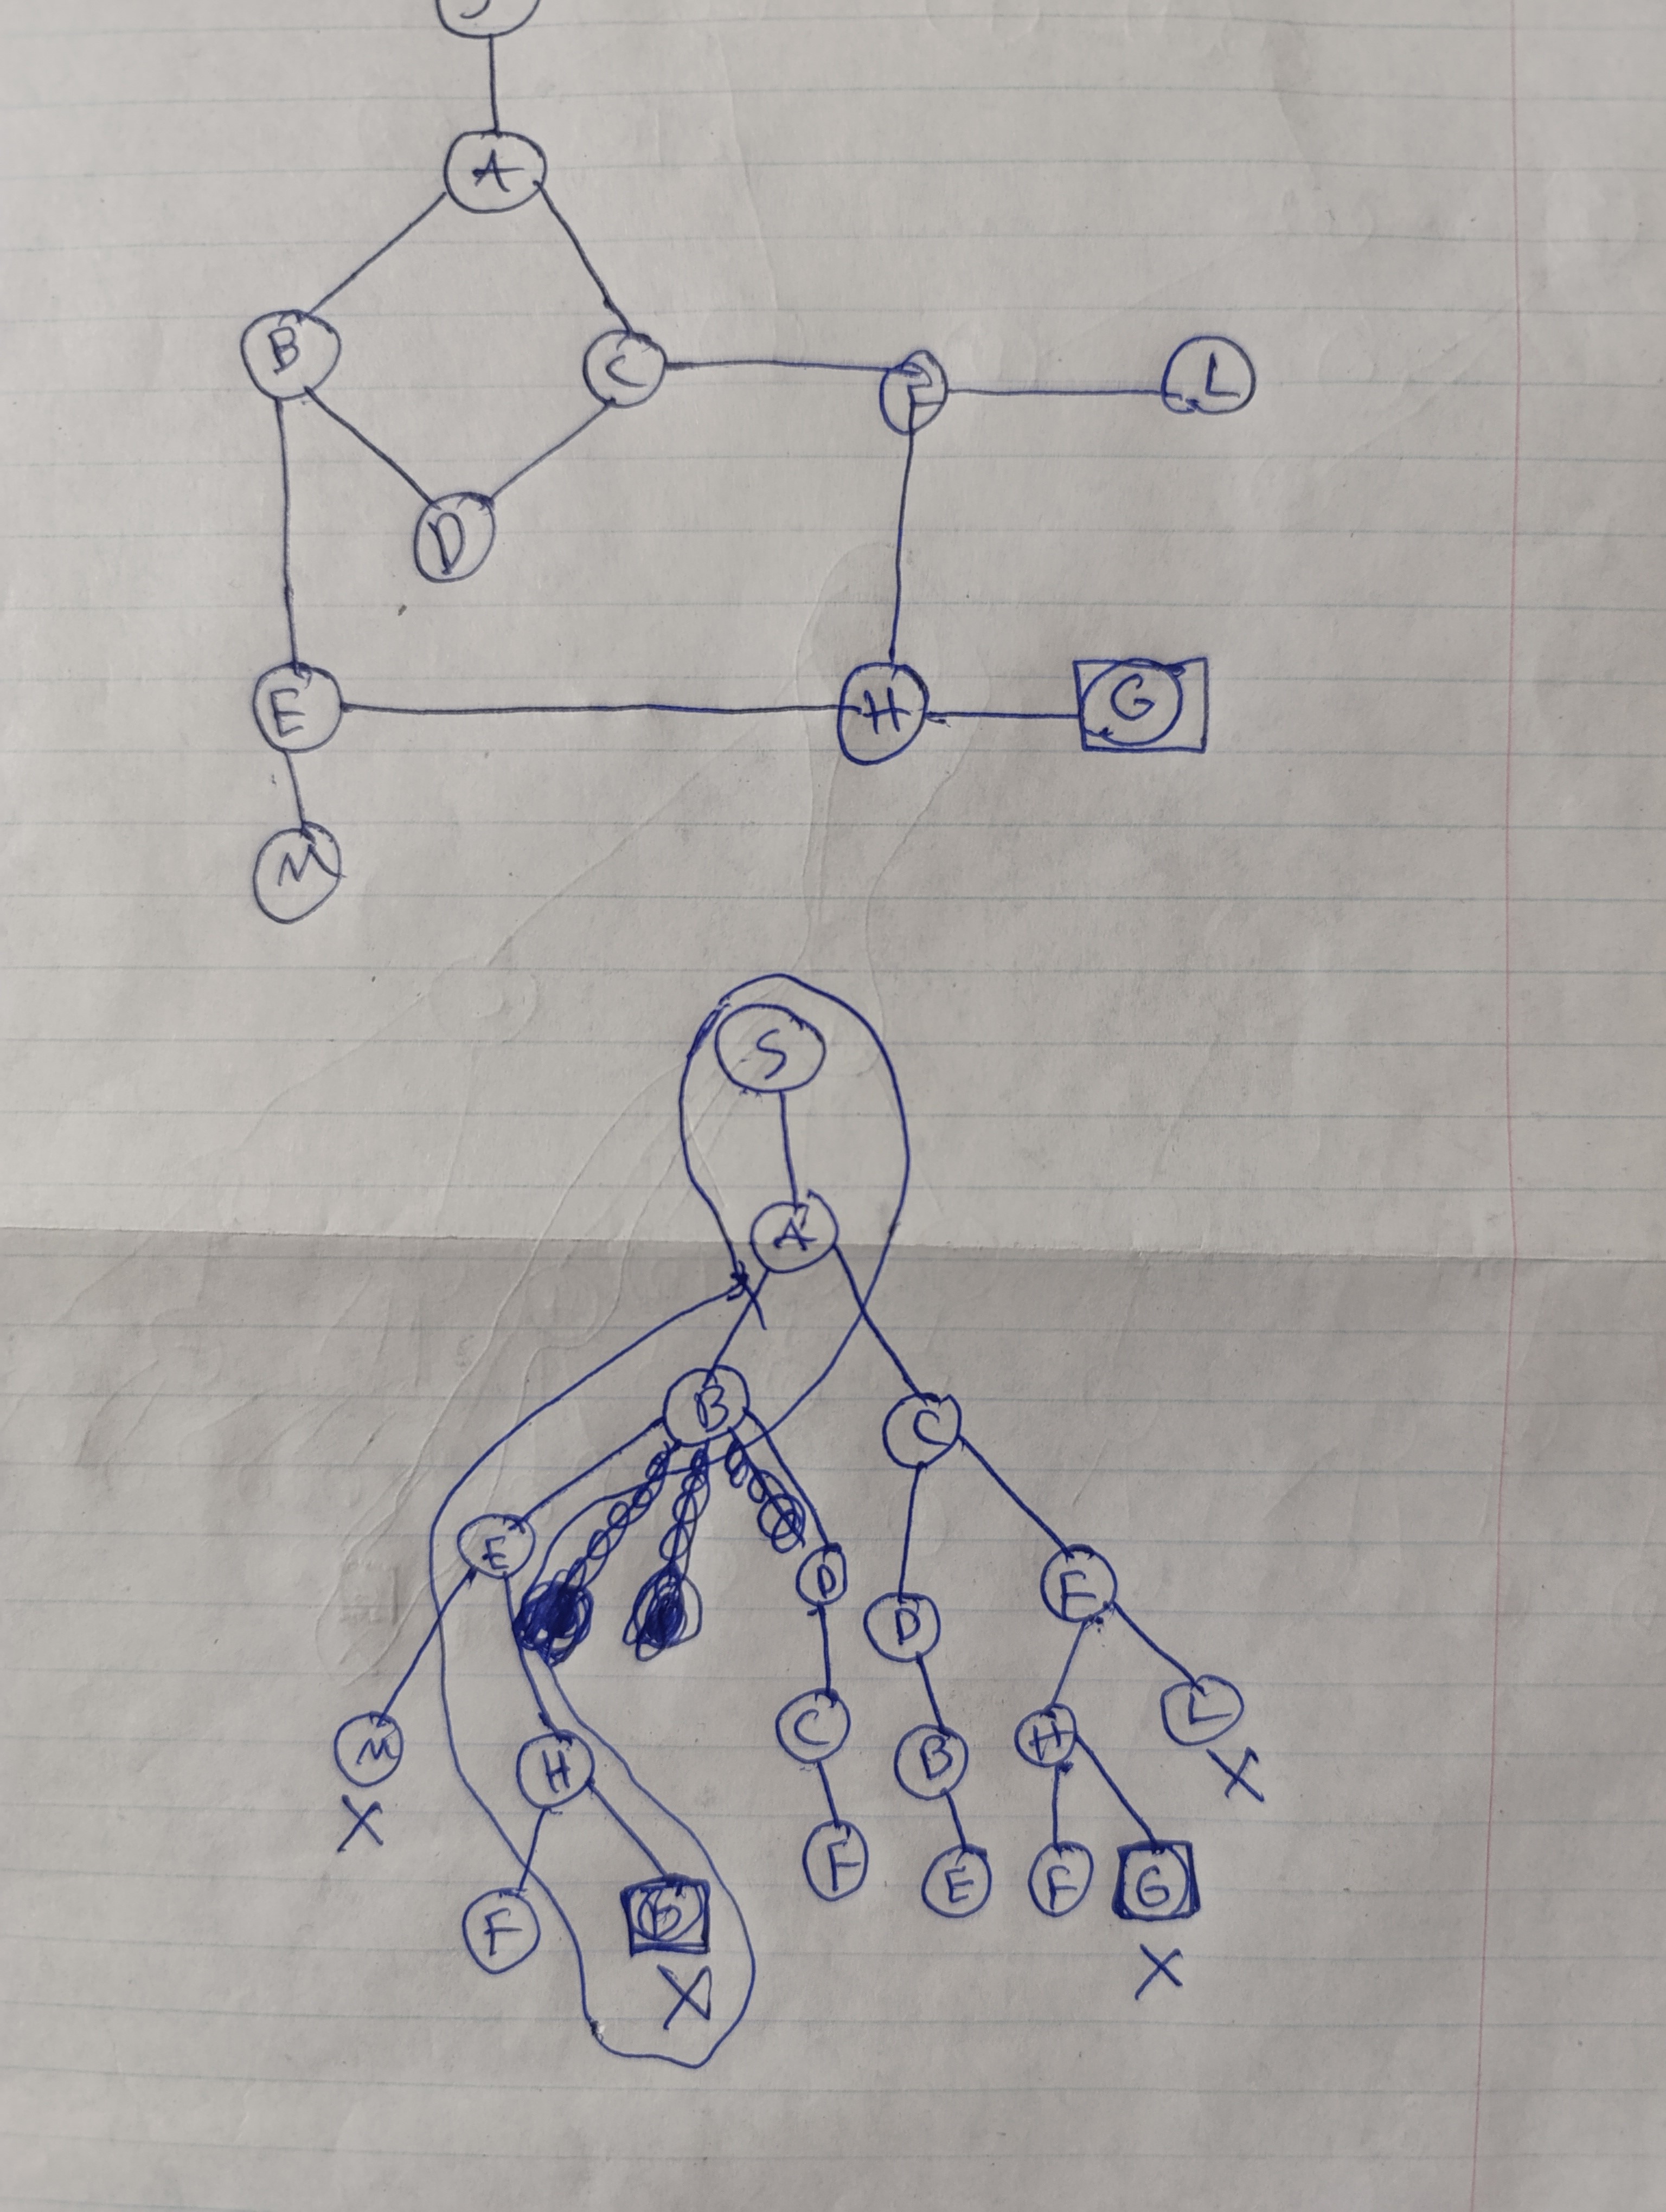 S
A
B C F L
D
E H G
M
S
A
B C
E D D F
M H C B H L
X X
F G F E F G
X X